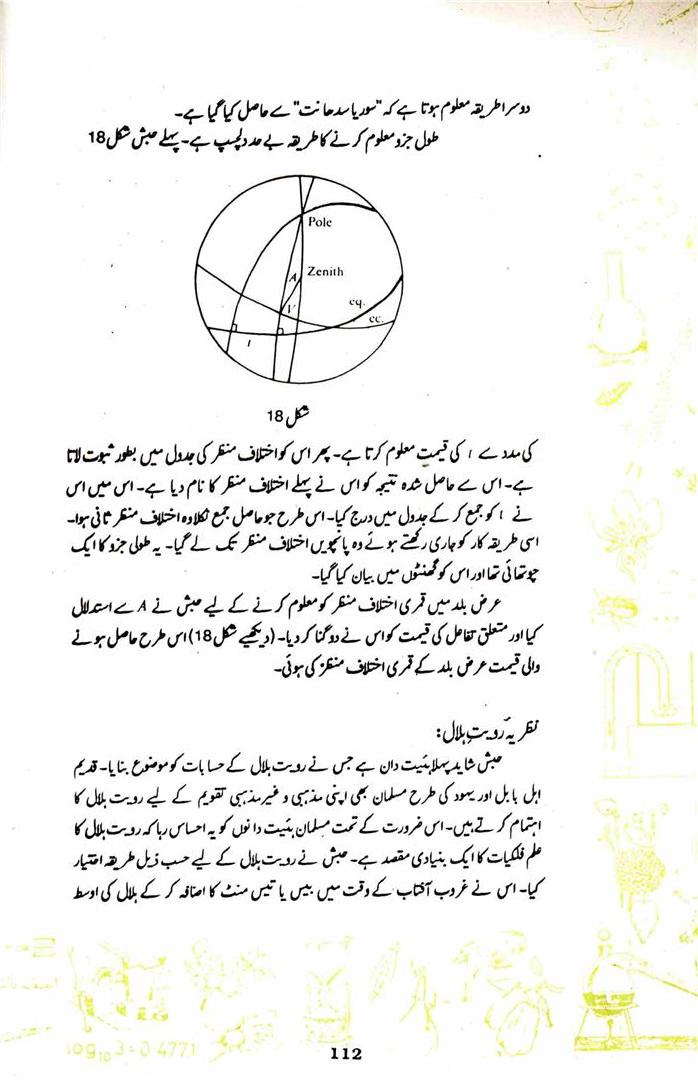 دوسرا طریقہ معلوم ہوتا ہے کہ "سوریا سدھانت" ے حاصل کیا گیا ہے۔
طول جزو معلوم کرنے کا طریقہ بے حد دلچسپ ہے۔ پہلے حبش شکل 18
Pole
Zenith
A
V
eq.
ec.
l
شکل 18
کی مدد ے l کی قیمت معلوم کرتا ہے۔ پھر اس کو اختلاف منظر کی جدول میں بطور ثبوت لاتا
ہے۔ اس ے حاصل شدہ نتیجہ کو اس نے پہلے اختلاف منظر کا نام دیا ہے۔ اس میں اس
نے l کو جمع کر کے جدول میں درج کیا۔ اس طرح جو حاصل جمع نکلا وہ اختلاف منظر ثانی ہوا۔
اسی طریقہ کار کو جاری رکھتے ہوئے وہ پانچویں اختلاف منظر تک لے گیا۔ یہ طولی جزو کا ایک
چوتھائی تھا اور اس کو گھنٹوں میں بیان کیا گیا۔
عرض بلد میں قمری اختلاف منظر کو معلوم کرنے کے لیے حبش نے A ے استدلال
کیا اور متعلق تفاعل کی قیمت کو اس نے دوگنا کر دیا۔ (دیکھیے شکل 18) اس طرح حاصل ہونے
والی قیمت عرض بلد کے قمری اختلاف منظر کی ہوئی۔
نظریہ رویت ہلال:
حبش شاید پہلا ہیئت دان ہے جس نے رویت ہلال کے حسابات کو موضوع بنایا۔ قدیم
اہل بابل اور یہود کی طرح مسلمان بھی اپنی مذہبی و غیر مذہبی تقویم کے لیے رویت ہلال کا
اہتمام کرتے ہیں۔ اس ضرورت کے تحت مسلمان ہیئت دانوں کو یہ احساس رہا کہ رویت ہلال کا
علم فلکیات کا ایک بنیادی مقصد ہے۔ حبش نے رویت ہلال کے لیے حسب ذیل طریقہ اختیار
کیا۔ اس نے غروب آفتاب کے وقت میں بیس یا تیس منٹ کا اضافہ کر کے ہلال کی اوسط
log₁₀ 3=0.4771
112